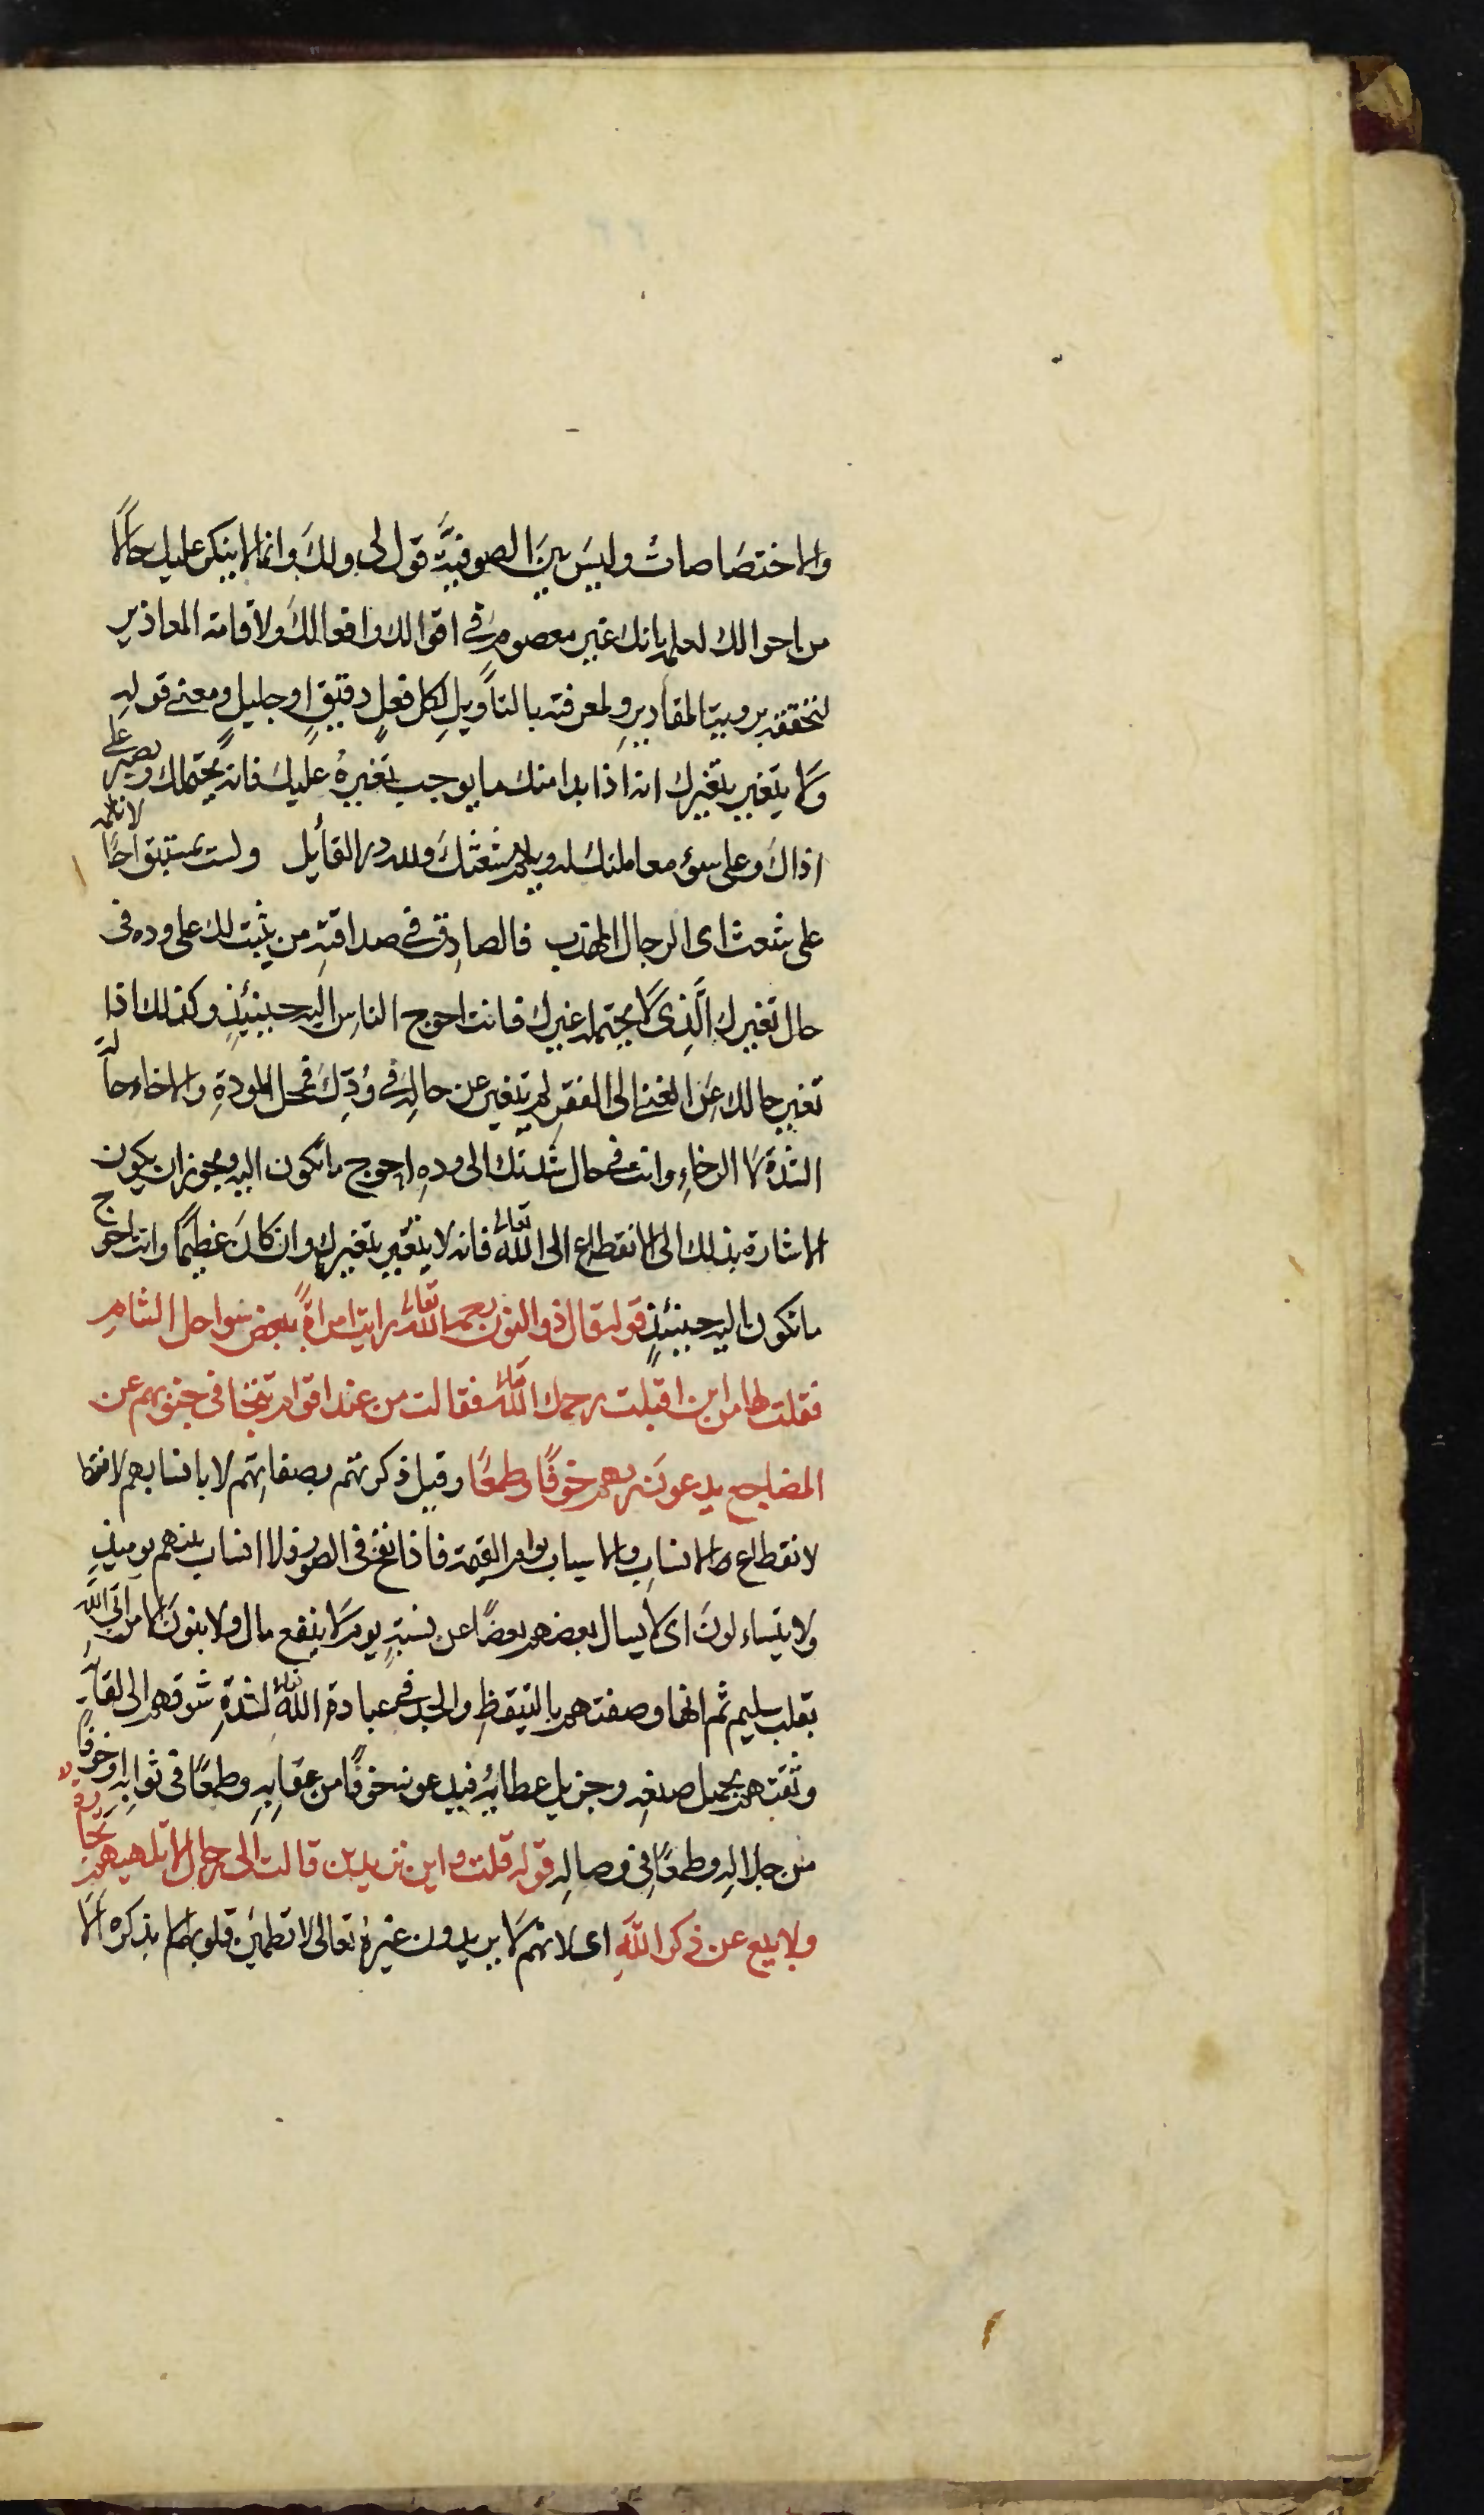 والاختصاصات وليسَ بينَ الصوفيَّةِ قول لى ولكَ وانما لاينكر عليك حالًا
من احوالك لعلمه بانك غير معصومٍ فى اقوالك وافعالكَ ولاقامته المعاذير
لتحققه بروية المقاديرِ ولمعرفته بالتأويلِ لكل فعلٍ دقيقٍ اوجليلٍ ومعنے قولهِ
ولا يتغير بتغيرك انه اذا بدا منك مايوجب تغيرهُ عليك فانه يحتملك ويصبر على
اذاك وعلى سوء معاملتك له ويلم شعثكَ ولله در القأيل ولست بمستبق اخًا لاتلمه
على شعث اى الرجال المهذب فالصادِق فى صداقتهِ من يثبت لك على وده فى
حال تغيرك الَّذِى لا يحتمله غيرك فانت احوج الناسِ اليه حينئذٍ وكذلك اذا
تغير حالك عَن الغنے الى الفقرِ لم يتغير عن حالهِ فى وُدِّكَ فمحل المودةِ والاخاء حالة
الشدة لا الرخاءِ وانت فى حال شدتك الى ودهِ احوج ماتكون اليه ويجوز ان يكون
الاشارة بذلك الى الانقطاع الى اللّٰه تعالى فانه لا يتغير بتغيرك وان كانَ عظيمًا وانت احوج
ماتكون اليه حينئذٍ قوله قال ذو النون رحمه اللّٰه تعالى رايت امراةً ببعض سواحل الشامِ
فقلت لها من اين اقبلت رحمك اللّٰه تعالى فقالت من عند اقوام تتجافى جنوبهم عن
المضاجع يدعونَ ربهم خوفًا وطمعًا وقيل ذكرتهم بصفاتِهم لا بانسابهم لانها
لانقطاع الانسابِ والاسباب يوم القيمة فاذا نفخ فى الصور فلا انساب بينهم يوميذٍ
ولا يتساءلونَ اى لا يسال بعضهم بعضًا عن نسبهِ يوم لا ينفع مال ولا بنونَ الا من اتى اللّٰه
بقلب سليم ثم انها وصفتهم بالتيقظِ والجد فى عبادة اللّٰه تعالى لشدةِ شوقهم الى لقائه
وثقتهم بجميل صنعهِ وجزيل عطايهِ فيدعونه خوفًا من عقابِهِ وطمعًا فى ثوابهِ اوخوفًا
من جلالهِ وطمعًا فى وصالهِ قوله قلت واين تريدين قالت الى رجال لا تلهيهم تجارة
ولا بيع عن ذكر اللّٰهِ اى لانهم لا يريدون غيرهُ تعالى لا تطمئن قلوبهم الا بذكره الا